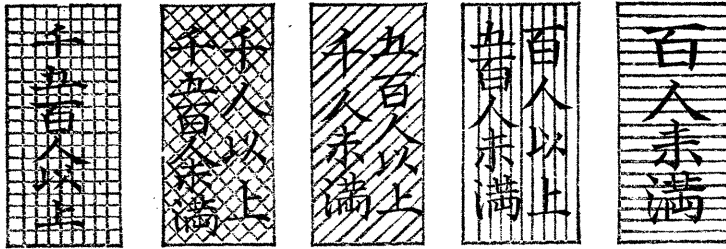 百人未満
百人以上
五百人未満
五百人以上
千人未満
千人以上
千五百人未満
千五百人以上